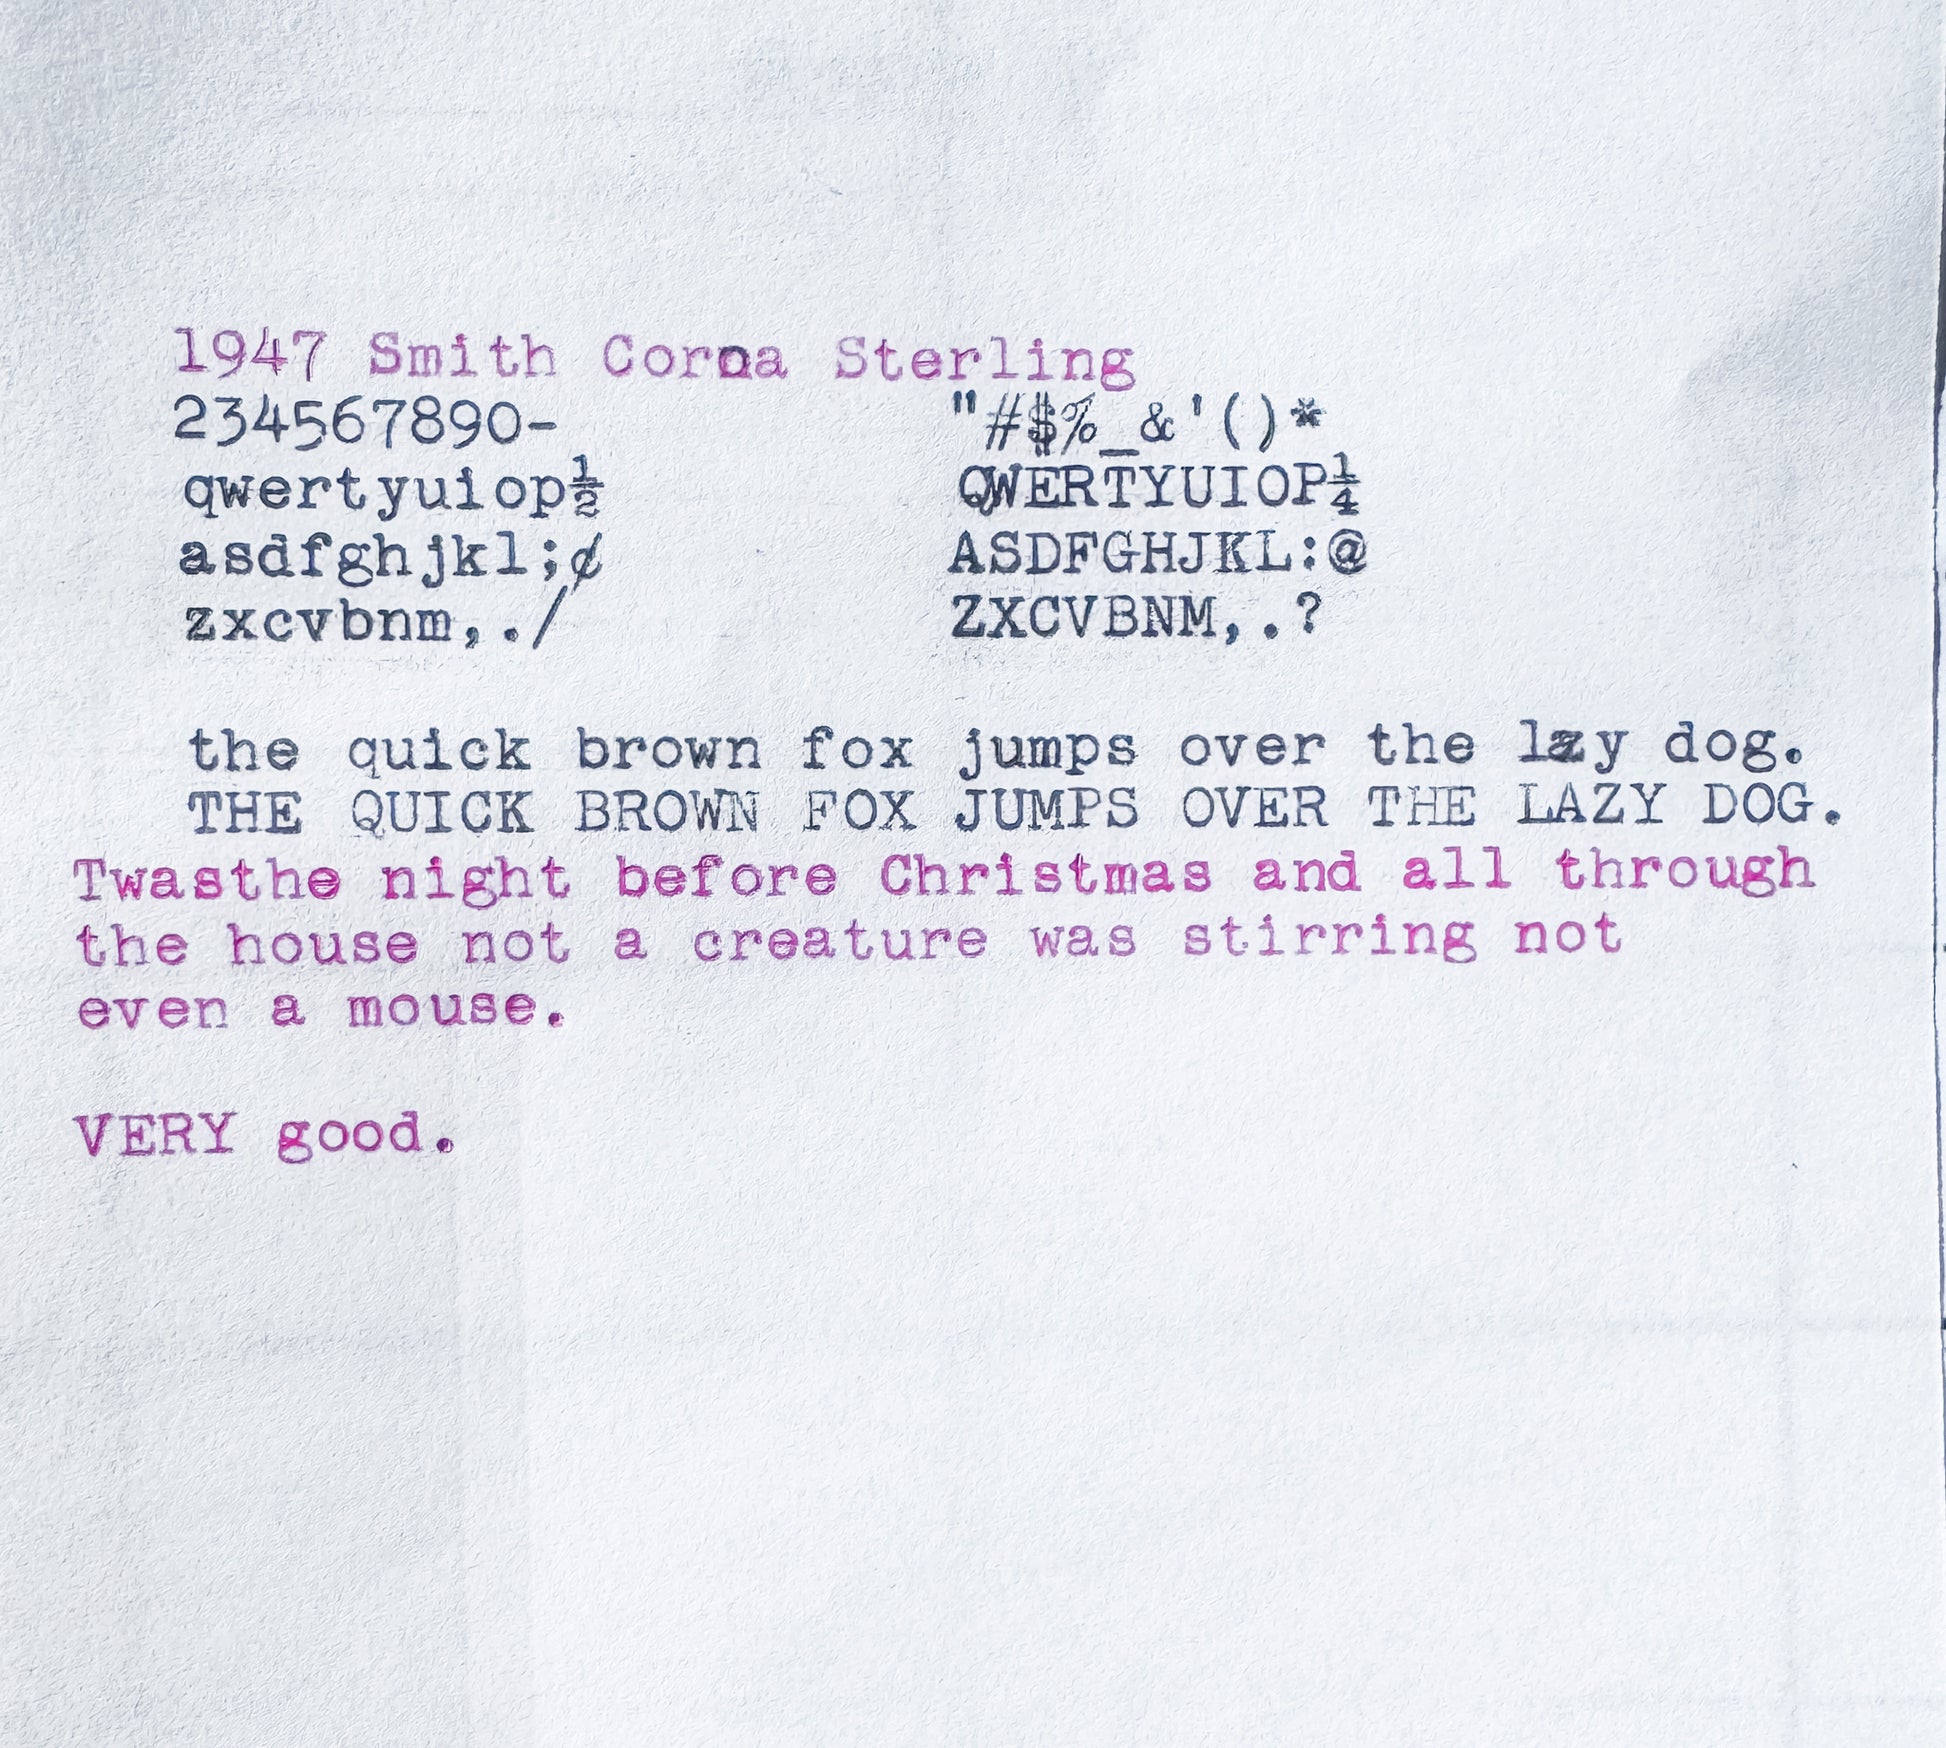 1947 Smith Corna Sterling
234567890- "#$%_&'()*
qwertyuiop½ QWERTYUIOP¼
asdfghjkl;¢ ASDFGHJKL:@
zxcvbnm,./ ZXCVBNM,.?
the quick brown fox jumps over the lazy dog.
THE QUICK BROWN FOX JUMPS OVER THE LAZY DOG.
Twasthe night before Christmas and all through
the house not a creature was stirring not
even a mouse.
VERY good.